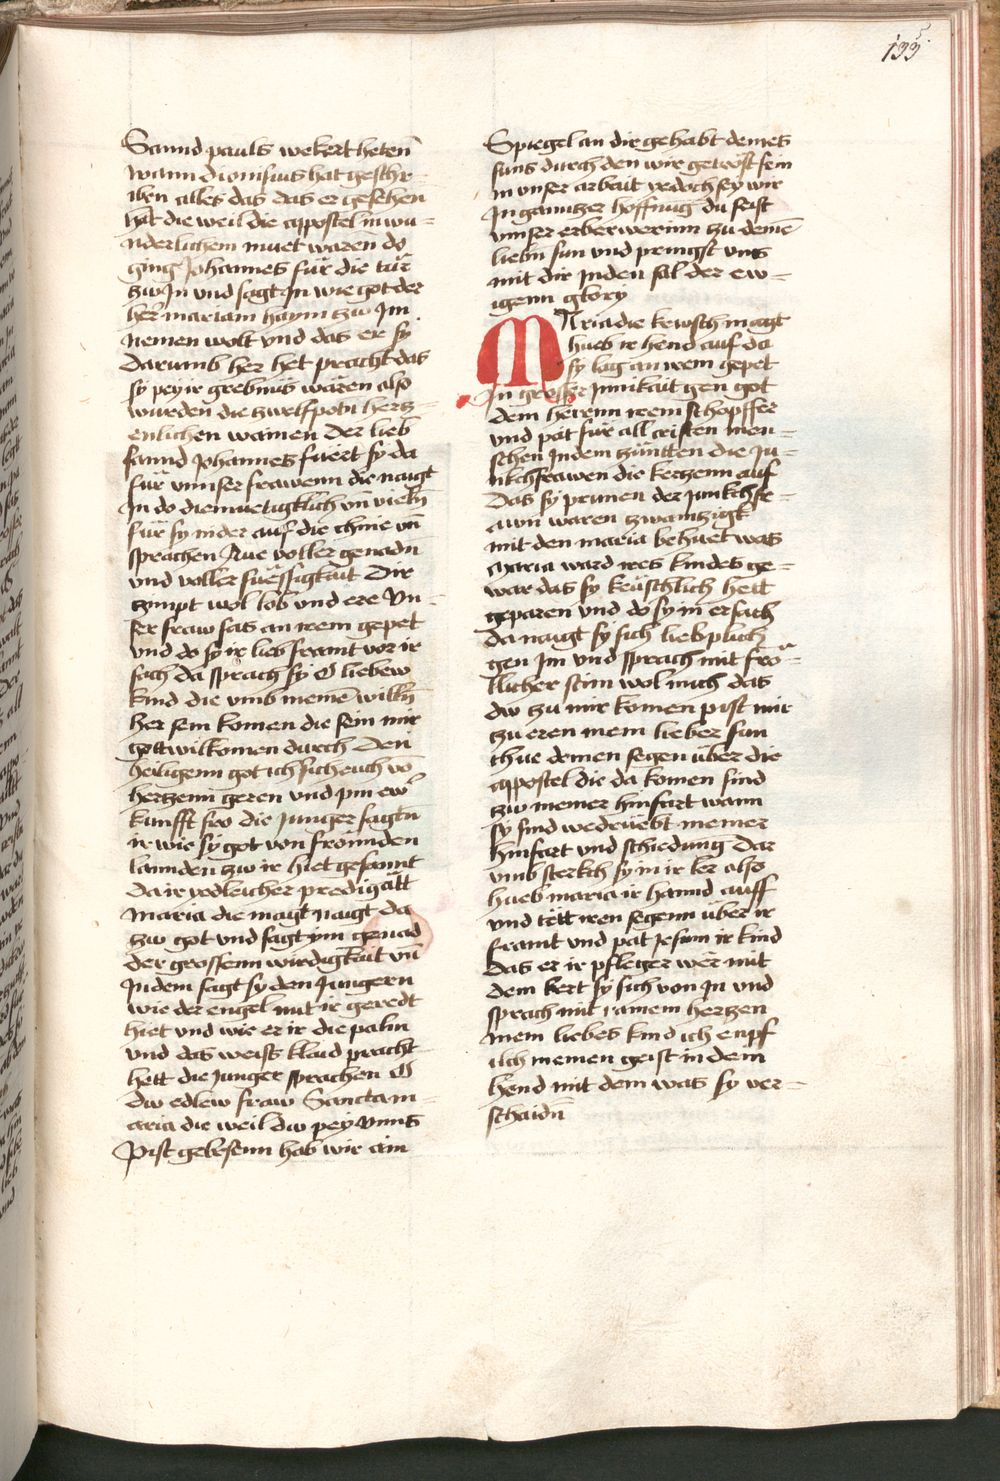 135
Sannd pauls wekert heten̄
wann dionisius hat geschr
iben alles das das er gesehen
hat die weil die appostel in wu=
nderlichem muet waren do
ging Johannes für die tür
zw In vnd sagt In wie got der
her mariam haym zw Im
nemen wolt vnd das er sy
darumb her het pracht das
sy pey ir grebnus wären also
wurden die zwelfpotn hercz=
enlichen wainen Der lieb
sannd Johannes fuert sy da
für vnnser frawenn die naigt
In do diemuetigklich vn̄ vieln̄
für sy nider auf die chnie vn̄
sprachen Aue voller genadn
vnd voller süessigkait Dir
zimpt wol lob vnd ere Vn=
ser fraw sas an irem gepet
vnd do sy ir lieb frawnt vor ir
sach da sprach sy O liebew
kind die vmb meinē willn̄
her sein komen die sein mir
gottwilkomen durch den
heiligenn got ich sich euch vō
herczenn geren vnd pin ewr̄
kunfft fro die Junger sagtn̄
ir wie sy got von frömden
lannden zw ir hiet gesannt
Da ir yedleicher predigätt
maria die magt naigt da
zw got vnd sagt ym genad
der grossenn wirdigkait vn̄
Indem sagt sy den Jungern
wie der engel mit ir geredt
hiet vnd wie er ir die palm
vnd das weiss klaid pracht
hett die Junger sprachen O
dw edlew fraw Sanctam=
aria die weil dw pey vnns
Pist gebesenn hab wir ain
Spiegel an dir gehabt deines
suns durch den wir getröst sein
in vnser arbait yedoch sey wir
In ganntzer hoffnūg du seist
vnnser erberwerinn zu deinē
liebn̄ sun vnd pringst vns
mit dir Inden sal der ew=
igenn glory
MAria die kewsch magt
hueb ir hend auf da
sy lag an irem gepet
In grosser Innikait gen got
dem herenn irem schopffer
vnd pat für all cristen men=
schen Indem züntten die Ju=
nkchfrawen die kerzenn auf
Das sy prunen der junkchfr=
awn waren zwainzigk
mit den maria behuet was
Maria ward ires kindes ge=
war das sy keüschlich hett
geparen vnd do sy in ersach
da naigt sy sich lieplich
gen Im vnd sprach mit frö=
llicher stim wol mich das
dw zu mir komen pist mir
zu eren mein lieber sun
thue deinen segen über die
appostel die da komen sind
zw meiner hinfart wann
sy sind wedeuebt meiner
hinfart vnd schiedung Dar
vmb sterkch sy in ir ler also
hueb maria ir hannd auff
vnd tett iren segenn über ir
frawnt vnd pat Jesum ir kind
Das er ir pfleger wer mit
dem kert sy sich von In vnd
sprach mit rainem herzen
mein liebes kind ich enpf
ilch meinen geist in dein
hend mit dem was sy ver=
schaidn̄